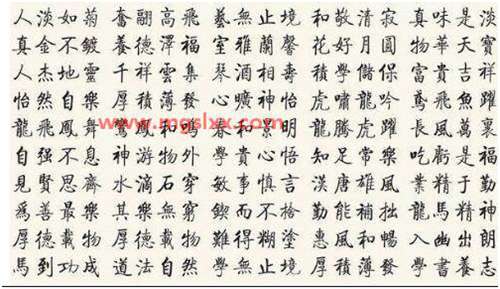 人淡如菊 奮翮高飛 藝無止境 和敬清寂 真味是淡
真金不鍍 養德澤福 室雅蘭馨 花好月圓 物華天寶
人杰地靈 千祥雲集 琴酒相壽 積學儲 富貴吉祥
怡然自樂 厚積薄發 心曠神怡 虎嘯龍吟 鳶飛魚躍
www.mgslxx.com
龍飛鳳舞 鸞鳳和鳴 春和景明 龍騰虎躍 長風萬裏
自强不息 神游物外 學貴心悟 知足常樂 吃虧是福
見賢思齊 水滴石穿 敏事慎言 漢唐雄風 業精于勤
為善最樂 其樂無窮 鍥而不捨 勤能補拙 龍馬精神
厚德載物 厚德載物 難得糊塗 惠風和暢 入幽出朗
馬到功成 道法自然 學無止境 厚積薄發 學書養志